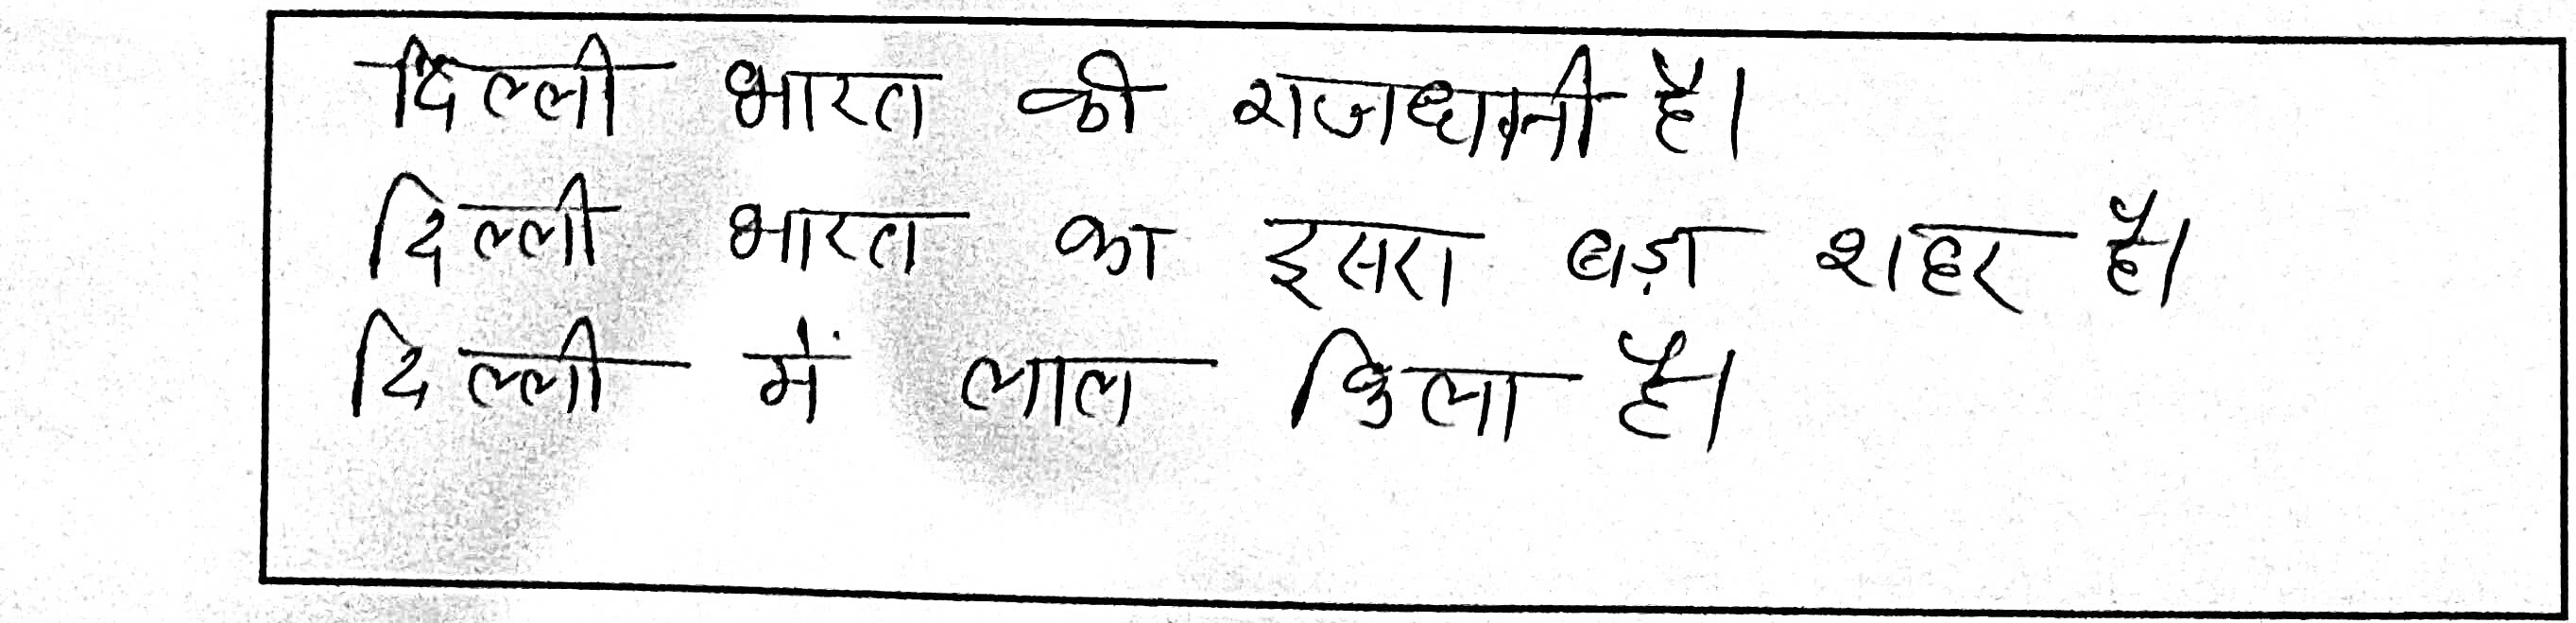 दिल्ली भारत की राजधानी है।
दिल्ली भारत का इसरा बड़ा शहर है।
दिल्ली में लाल किला है।